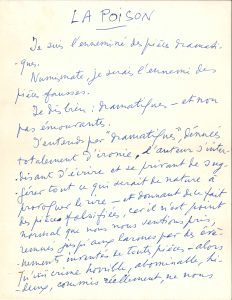 LA POISON
Je suis l'ennemi né des pièces dramati-
-ques.
Numismate, je serais l'ennemi des
pièces fausses.
Je dis bien : dramatiques — et non
pas émouvantes.
J'entends par "dramatiques", dénuées
totalement d'ironie, l'auteur s'inter-
disant d'écrire et se privant de sug-
gérer tout ce qui serait de nature à
provoquer le rire — et donnant du fait
des pièces falsifiées, car il n'est point
normal que nous nous sentions pris,
émus jusqu'aux larmes par des évé-
nements inventés de toutes pièces — alors
qu'un crime horrible, abominable, hi-
-deux, commis réellement, ne nous